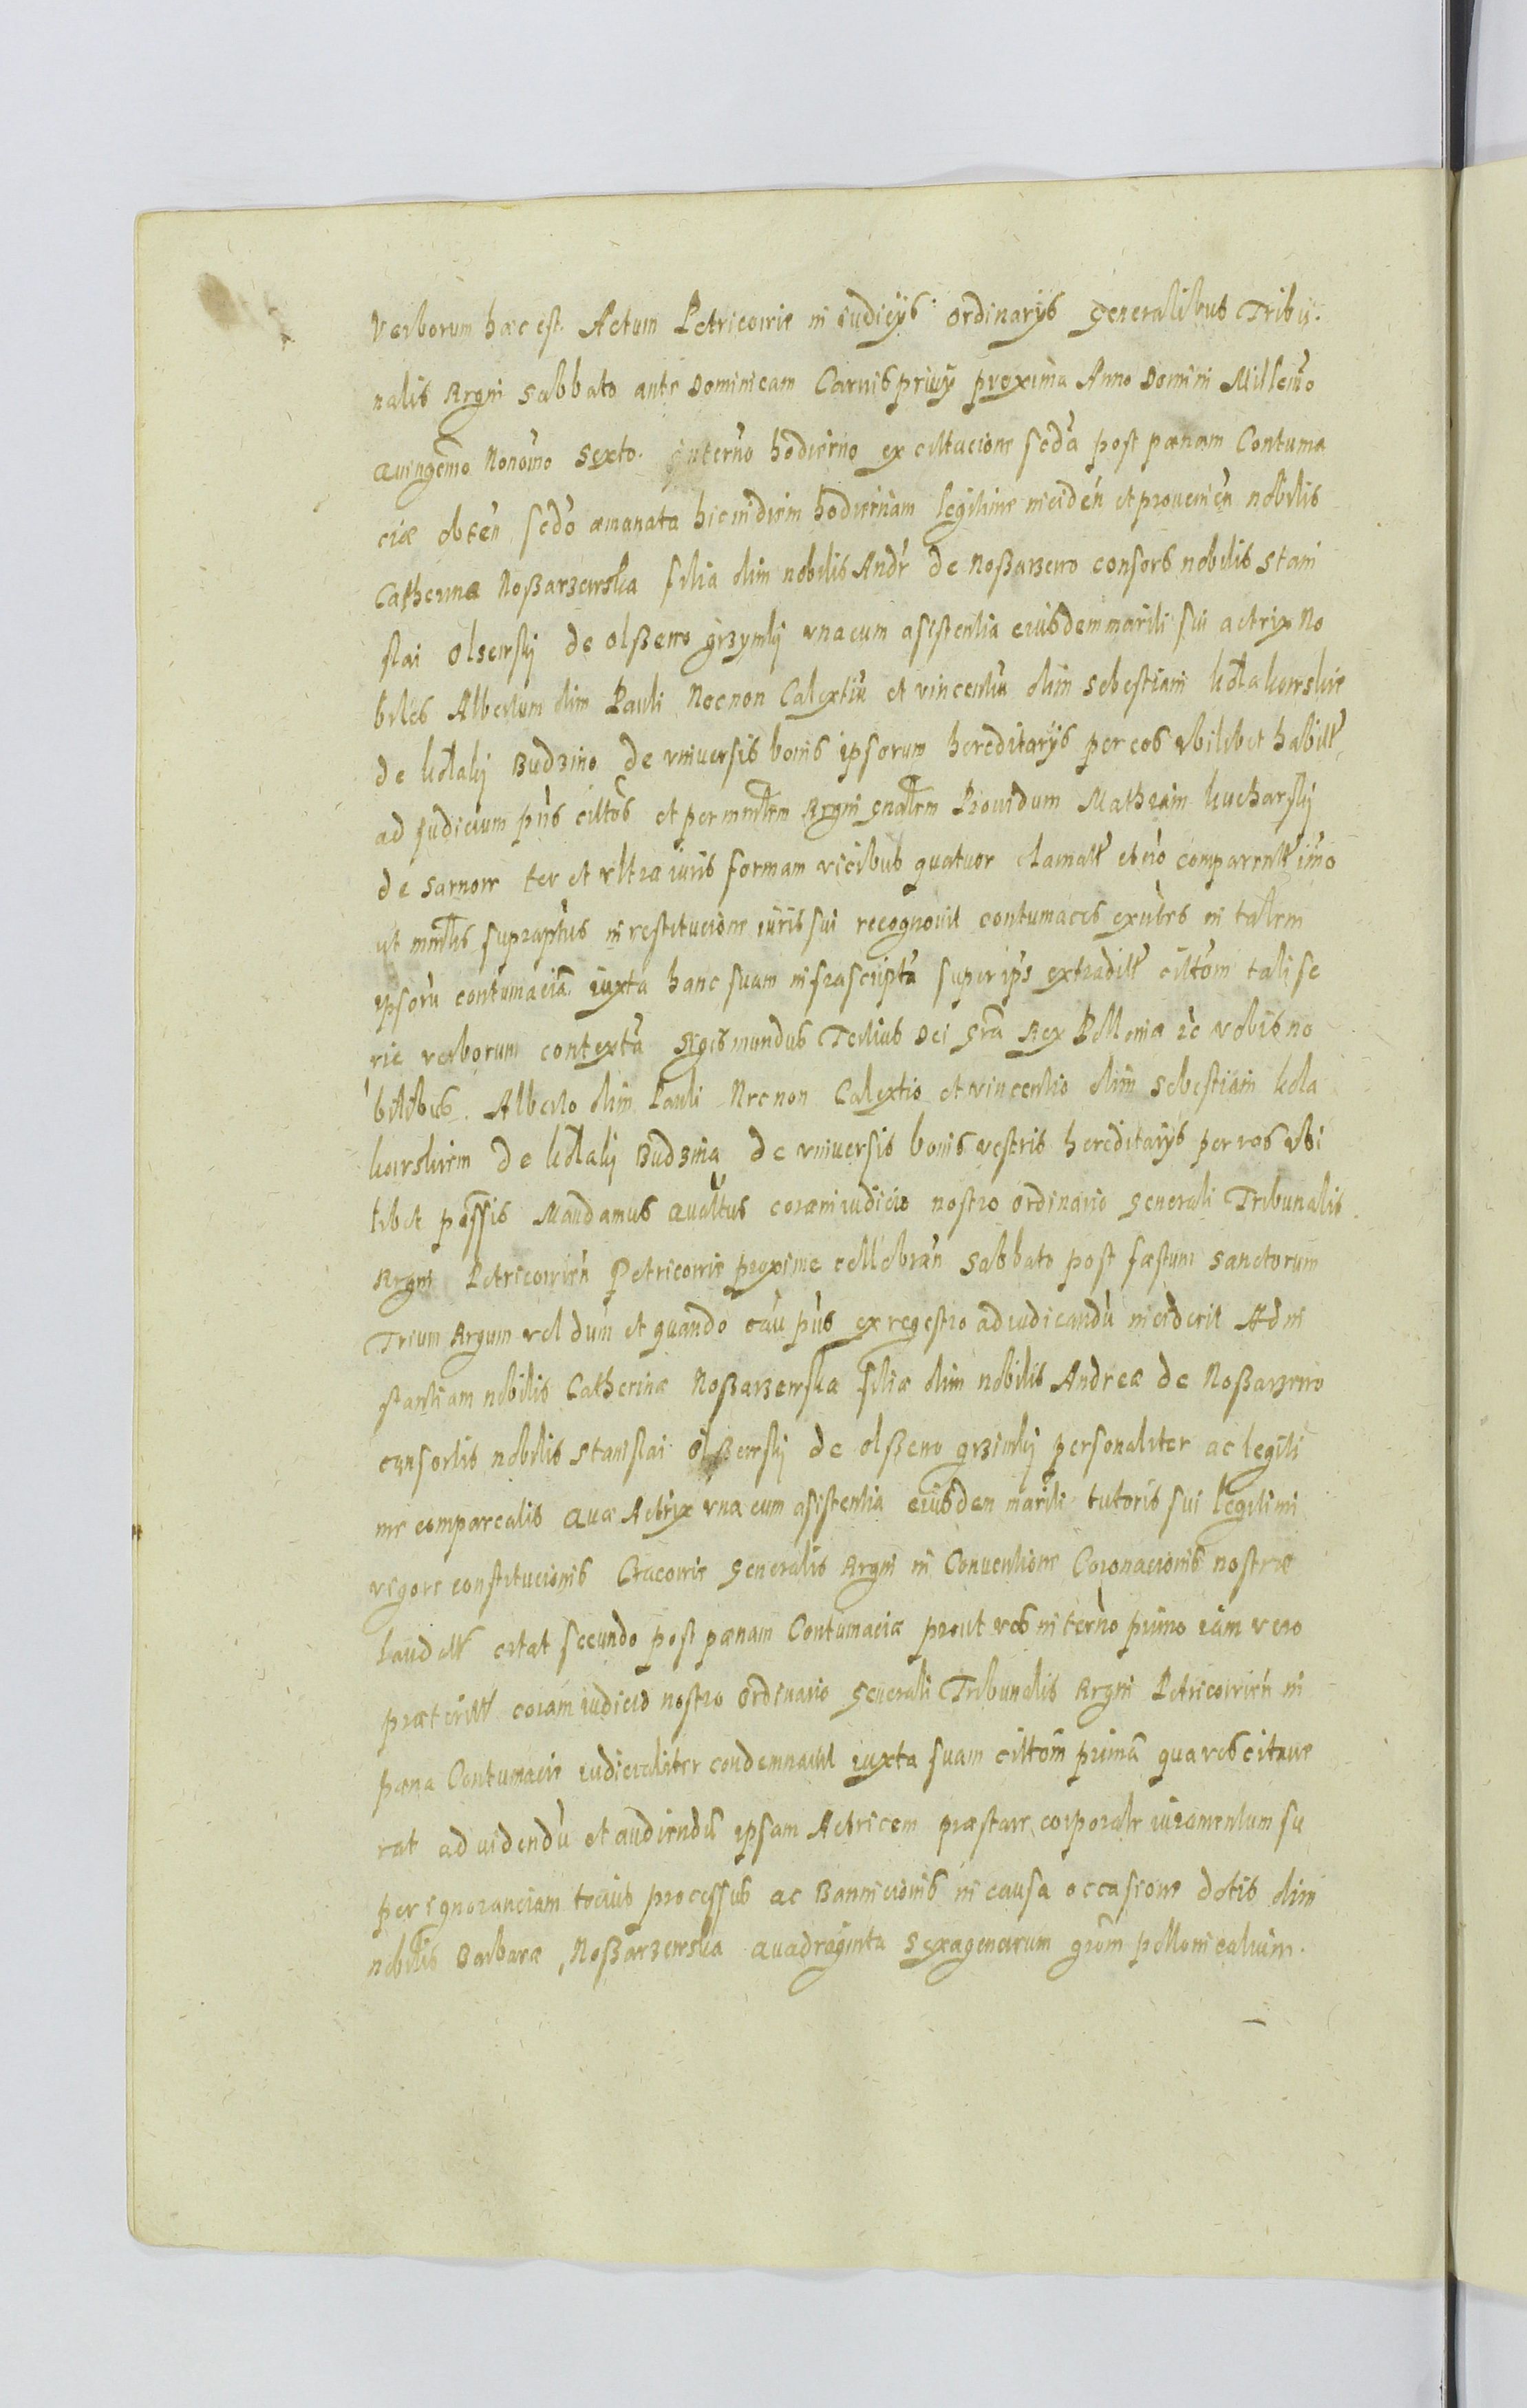 Verborum hæc est. Actum Petricoviæ in iudicys ordinarys Generalibus Tribu.
nalis Regni Sabbato ante Dominicam Carnisprivy proxima Anno Domini Millemo
Quingemo Nonomo Sexto. In termo hodierno ex cittacione scda post pænam Contuma
ciæ obten scdo æmanata hic indiem hodiernam legitime inciden et provenien nobilis
Catherina Noßarzewska filia olim nobilis Andr de Noßarzewo consors nobilis Stani
slai Olsewskj de Olßewo grzymkj vna cum asistentia eiusdem mariti sui actrix No
biles Albertum olim Pauli Necnon Calextiu et vincentiu olim Sebestiani kołakowskie
de kołakj Budzino de vniversis bonis ipsorum hereditarys per eos vbilibet habitt
ad Judicium pns cittos et per mnlem Regni gnalem Providum Mathiam kucharskj
de Sarnow ter et vltra iuris formam vicibus quatuor clamatt et no comparentt imo
ut mnlis supraptus in restitucione iuris sui recognovit contumaces exntes in talem
ipsoru contumacia iuxta hanc suam infrascripta super ips extraditt cittom tali se
rie verborum contexta Sigismundus Tertius Dei Gra Rex Polloniæ etc vobis no
bilibus. Alberto olim Pauli Necnon Calextio et vincentio olim Sebestiani kola
kowskiem de kołakj Budzina de vniversis bonis vestris hereditarys per vos vbi
libet possis Mandamus Quattus coram iudicio nostro ordinario Generali Tribunalis
Regni Petricovien Petricoviæ proxime cellebran Sabbato post fæstum Sanctorum
Trium Regum vel dum et quando cau pns ex regestro ad iudicandu inciderit Ad in
stantiam nobilis Catherinæ Noßarzewska filiæ olim nobilis Andreæ de Noßarzewo
consortis nobilis Stanislai Olßewskj de olßewo grzimkj personaliter ac legiti
me compareatis Quæ Actrix vna cum asistentia eiusdem mariti tutoris sui legitimi
vigore constitucionis Cracoviæ Generalis Regni in Conventione Coronacionis nostræ
laudatt citat secundo post pænam Contumaciæ prout vos in termo primo iam vero
præteritt coram iudicio nostro ordinario Generali Tribunalis Regni Petricovien in
pæna Contumaciæ iudicialiter condemnavit iuxta suam cittom prima qua vos citave
rat ad videndu et audiendu ipsam Actricem præstare corporale iuramentum su
per ignoranciam tocius processus ac Bannicionis in causa occasione dotis olim
nobilis Barbaræ Noßarzewska Quadraginta Sexagenarum grom pollonicalium.